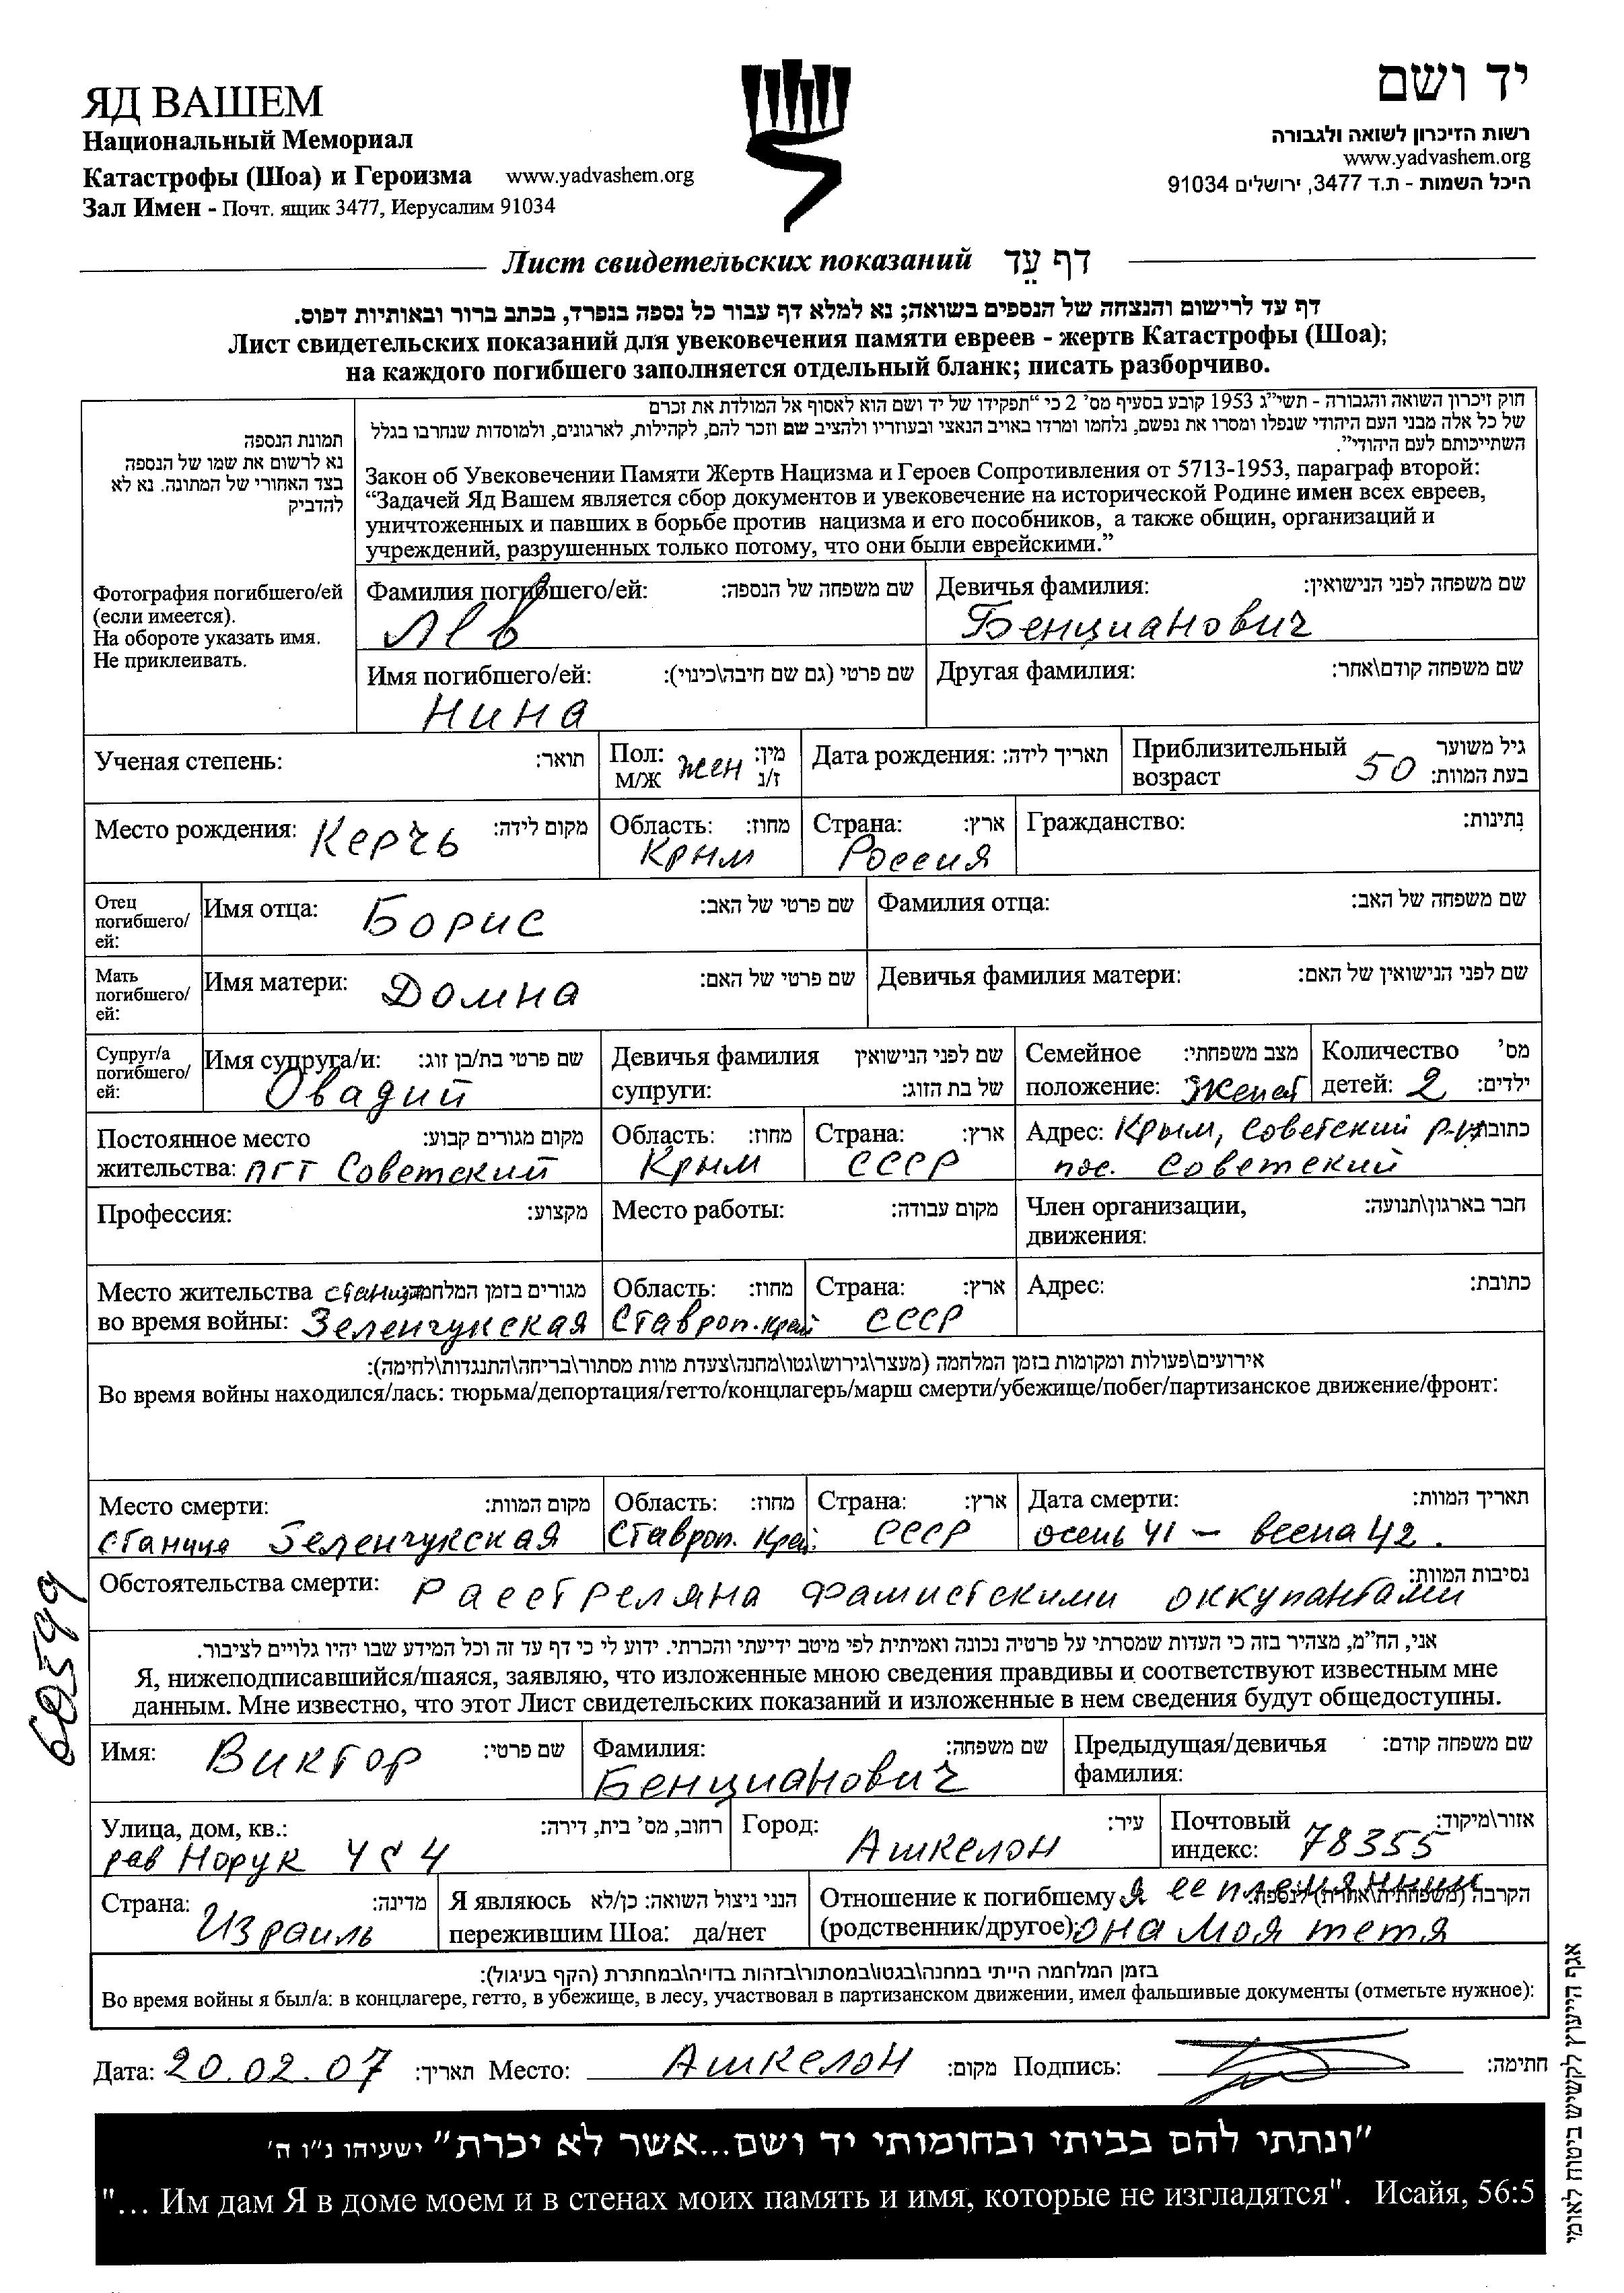 ЯД ВАШЕМ
Национальный Мемориал
Катастрофы (Шоа) и Героизма www.yadvashem.org
Зал Имен - Почт. ящик 3477, Иерусалим 91034
יד ושם
רשות הזיכרון לשואה ולגבורה
www.yadvashem.org
היכל השמות - ת.ד 3477, ירושלים 91034
Лист свидетельских показаний דף עֵד
דף עד לרישום והנצחה של הנספים בשואה; נא למלא דף עבור כל נספה בנפרד, בכתב ברור ובאותיות דפוס.
Лист свидетельских показаний для увековечения памяти евреев - жертв Катастрофы (Шоа);
на каждого погибшего заполняется отдельный бланк; писать разборчиво.
תמונת הנספה
נא לרשום את שמו של הנספה
בצד האחורי של המתונה. נא לא
להדביק
Фотография погибшего/ей
(если имеется).
На обороте указать имя.
Не приклеивать.
חוק זיכרון השואה והגבורה - תשי"ג 1953 קובע בסעיף מס' 2 כי "תפקידו של יד ושם הוא לאסוף אל המולדת את זכרם
של כל אלה מבני העם היהודי שנפלו ומסרו את נפשם, נלחמו ומרדו באויב הנאצי ובעוזריו ולהציב שם וזכר להם, לקהילות, לארגונים, ולמוסדות שנחרבו בגלל
השתייכותם לעם היהודי".
Закон об Увековечении Памяти Жертв Нацизма и Героев Сопротивления от 5713-1953, параграф второй:
“Задачей Яд Вашем является сбор документов и увековечение на исторической Родине имен всех евреев,
уничтоженных и павших в борьбе против нацизма и его пособников, а также общин, организаций и
учреждений, разрушенных только потому, что они были еврейскими.”
Фамилия погибшего/ей: שם משפחה של הנספה:
Лев
Девичья фамилия: שם משפחה לפני הנישואין:
Бенцианович
Имя погибшего/ей: שם פרטי (גם שם חיבה\כינוי):
Нина
Другая фамилия: שם משפחה קודם\אחר:
Ученая степень: תואר:
Пол: жен מין:
М/Ж ז/נ
Дата рождения: תאריך לידה:
Приблизительный גיל משוער
возраст 50 בעת המוות:
Место рождения: Керчь מקום לידה:
Область: מחוז:
Крым
Страна: ארץ:
Россия
Гражданство: נתינות:
Отец
погибшего/
ей:
Имя отца: Борис שם פרטי של האב:
Фамилия отца: שם משפחה של האב:
Мать
погибшего/
ей:
Имя матери: Домна שם פרטי של האם:
Девичья фамилия матери: שם לפני הנישואין של האם:
Супруг/а
погибшего/
ей:
Имя супруга/и: שם פרטי בת/בן זוג:
Овадий
Девичья фамилия שם לפני הנישואין
супруги: של בת הזוג:
Семейное מצב משפחתי:
положение: Женат
Количество מס'
детей: 2 ילדים:
Постоянное место מקום מגורים קבוע:
жительства: пгт Советский
Область: מחוז:
Крым
Страна: ארץ:
СССР
Адрес: Крым, Советский р-н כתובת:
пос. Советский
Профессия: מקצוע:
Место работы: מקום עבודה:
Член организации, חבר בארגון\תנועה:
движения:
Место жительства станица מגורים בזמן המלחמה:
во время войны: Зеленчукская
Область: מחוז:
Ставроп. край
Страна: ארץ:
СССР
Адрес: כתובת:
אירועים\פעולות ומקומות בזמן המלחמה (מעצר\גירוש\גטו\מחנה\צעדת מוות מסתור\בריחה\התנגדות\לחימה):
Во время войны находился/лась: тюрьма/депортация/гетто/концлагерь/марш смерти/убежище/побег/партизанское движение/фронт:
Место смерти: מקום המוות:
станица Зеленчукская
Область: מחוז:
Ставроп. край
Страна: ארץ:
СССР
Дата смерти: תאריך המוות:
осень 41 – весна 42.
Обстоятельства смерти: Расстреляна фашистскими оккупантами נסיבות המוות:
אני, הח"מ, מצהיר בזה כי העדות שמסרתי על פרטיה נכונה ואמיתית לפי מיטב ידיעתי והכרתי. ידוע לי כי דף עד זה וכל המידע שבו יהיו גלויים לציבור.
Я, нижеподписавшийся/шаяся, заявляю, что изложенные мною сведения правдивы и соответствуют известным мне
данным. Мне известно, что этот Лист свидетельских показаний и изложенные в нем сведения будут общедоступны.
Имя: Виктор שם פרטי:
Фамилия: שם משפחה:
Бенцианович
Предыдущая/девичья שם משפחה קודם:
фамилия:
Улица, дом, кв.: רחוב, מס' בית, דירה:
рав Норук
Город: Ашкелон עיר:
Почтовый אזור\מיקוד:
индекс: 78355
Страна: Израиль מדינה:
Я являюсь הנני ניצול השואה: כן/לא
пережившим Шоа: да/нет
Отношение к погибшему Я ее племянник הקרבה (משפחתית\אחרת) לנספה:
(родственник/другое): она моя тетя
בזמן המלחמה הייתי במחנה\בגטו\במסתור\בזהות בדויה\במחתרת (הקף בעיגול):
Во время войны я был/а: в концлагере, гетто, в убежище, в лесу, участвовал в партизанском движении, имел фальшивые документы (отметьте нужное):
Дата: 20.02.07 תאריך: Место: Ашкелон מקום: Подпись: חתימה:
"ונתתי להם בביתי ובחומותי יד ושם...אשר לא יכרת" ישעיהו נ"ו ה'
"... Им дам Я в доме моем и в стенах моих память и имя, которые не изгладятся". Исайя, 56:5
אגף הייעוץ לקשיש ביטוח לאומי